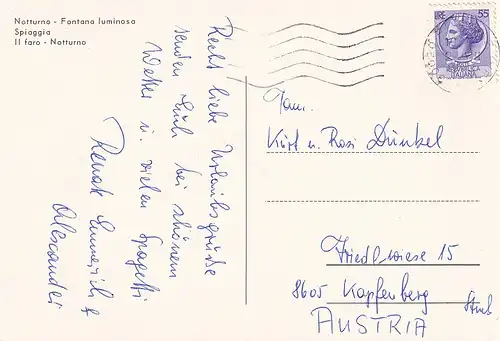 Notturno - Fontana luminosa
Spiaggia
Il faro - Notturno
LIRE 55
ITALIANA
Recht liebe Urlaubsgrüße
senden Euch bei schönem
Wetter u. vielen Spagetti
Renate Emmerich +
Alexander
Fam.
Kurt u. Rosi Dunkel
Friedlwiese 15
8605 Kapfenberg
Stmk
AUSTRIA